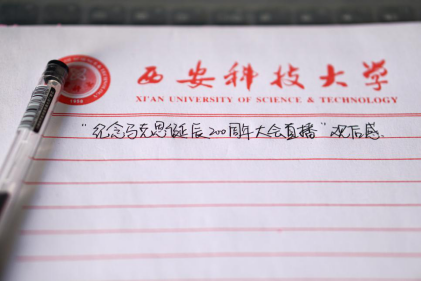 西安科技大学
XI'AN UNIVERSITY OF SCIENCE & TECHNOLOGY
“纪念马克思诞辰200周年大会直播”观后感